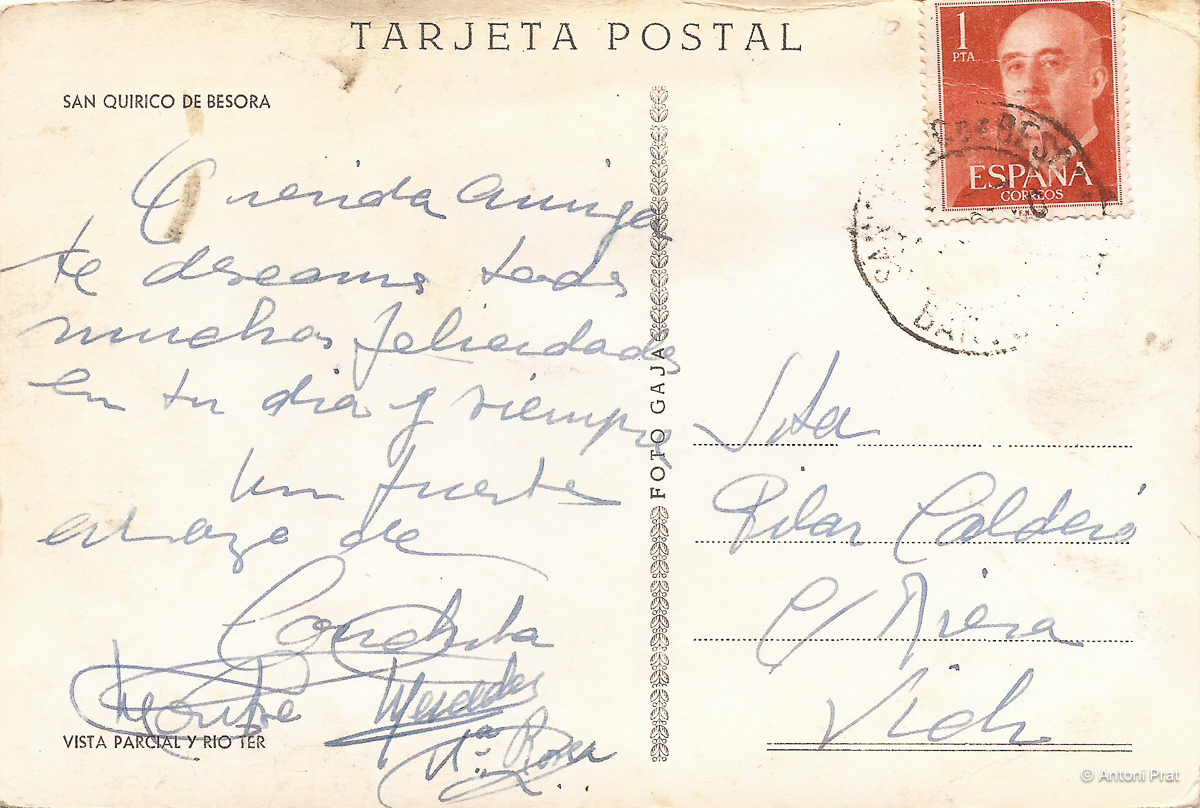 TARJETA POSTAL
SAN QUIRICO DE BESORA
Querida amiga
te deseamos todas
muchas felicidades
en tu dia y siempre
Un fuerte
abrazo de
Conchita
Montse Mercedes
Mª Rosa
VISTA PARCIAL Y RIO TER
FOTO GAJA
1
PTA
ESPAÑA
CORREOS
Srta
Pilar Calderó
C/ Riera
Vich
© Antoni Prat